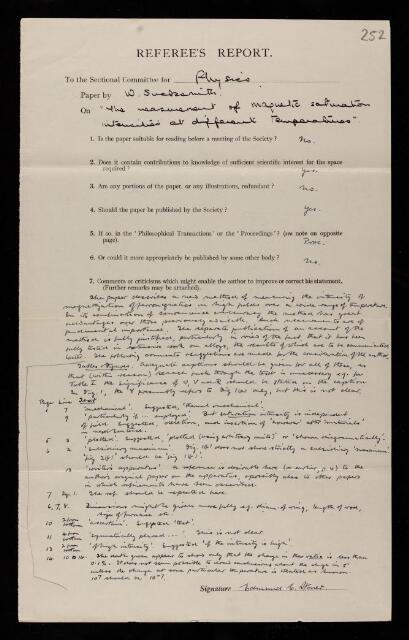 252
REFEREE'S REPORT.
To the Sectional Committee for Physics
Paper by W. Sucksmith.
On "The measurement of magnetic saturation
intensities at different temperatures"
1. Is the paper suitable for reading before a meeting of the Society ? No.
2. Does it contain contributions to knowledge of sufficient scientific interest for the space
required ? Yes.
3. Are any portions of the paper, or any illustrations, redundant ? No.
4. Should the paper be published by the Society ? Yes.
5. If so, in the 'Philosophical Transactions' or the 'Proceedings' ? (see note on opposite
page). Proc.
6. Or could it more appropriately be published by some other body ? No.
7. Comments or criticisms which might enable the author to improve or correct his statement.
(Further remarks may be attached).
The paper describes a new method of measuring the intensity of
magnetization of ferromagnetics in high fields over a wide range of temperature.
In its combination of convenience and accuracy the method has great
advantages over those previously available. Such measurements are of
fundamental importance. The separate publication of an account of the
method is fully justified, particularly in view of the fact that it has been
fully tested in extensive work on alloys, the results of which are to be communicated
later. The following comments and suggestions are made for the consideration of the author.
Tables & Figures. Adequate captions should be given for all of these, so
that
Table I the significance of should be stated in the caption.
In Fig. 1, the presumably refers to Fig. 1(a) only, but this is not clear.
Page Line Text
6 7 'mechanical'. Suggested, 'thermo-mechanical'.
9 'particularly if changed'. But saturation intensity is independent
of field. Suggested, deletion, and insertion of 'however' after 'materials'
in next sentence.
5 3 'plotted'. Suggested, 'plotted (using arbitrary units)' or 'shown diagrammatically'.
6 2 does not show strictly a subsidiary maximum.
'Fig. 2(b)' should be 'Fig. 1(b)'.
13 'writer's apparatus'. A reference is desirable here (as earlier, p. 4) to the
author's original paper on the apparatus, especially also to other papers
in which refinements have been described.
7 Fig. 1. The ref. should be repeated here.
6, 7, 8. Dimensions might be given more fully e.g. diam. of ring, length of rod,
size of furnace etc.
10 2 from bottom Suggested 'that'.
11 4 from bottom 'Symmetrically placed...' This is not clear.
13 2 from bottom 'of high intensity'. Suggested 'if the intensity is high'
14 10 to 14. The data given appear to show only that the change in the ratio is less than
0·1%. It does not seem possible to draw conclusions about the change in σ
unless the change at some particular temperature is stated as known.
10⁵ should be 10⁻⁵.
Signature Edmund C. Stoner